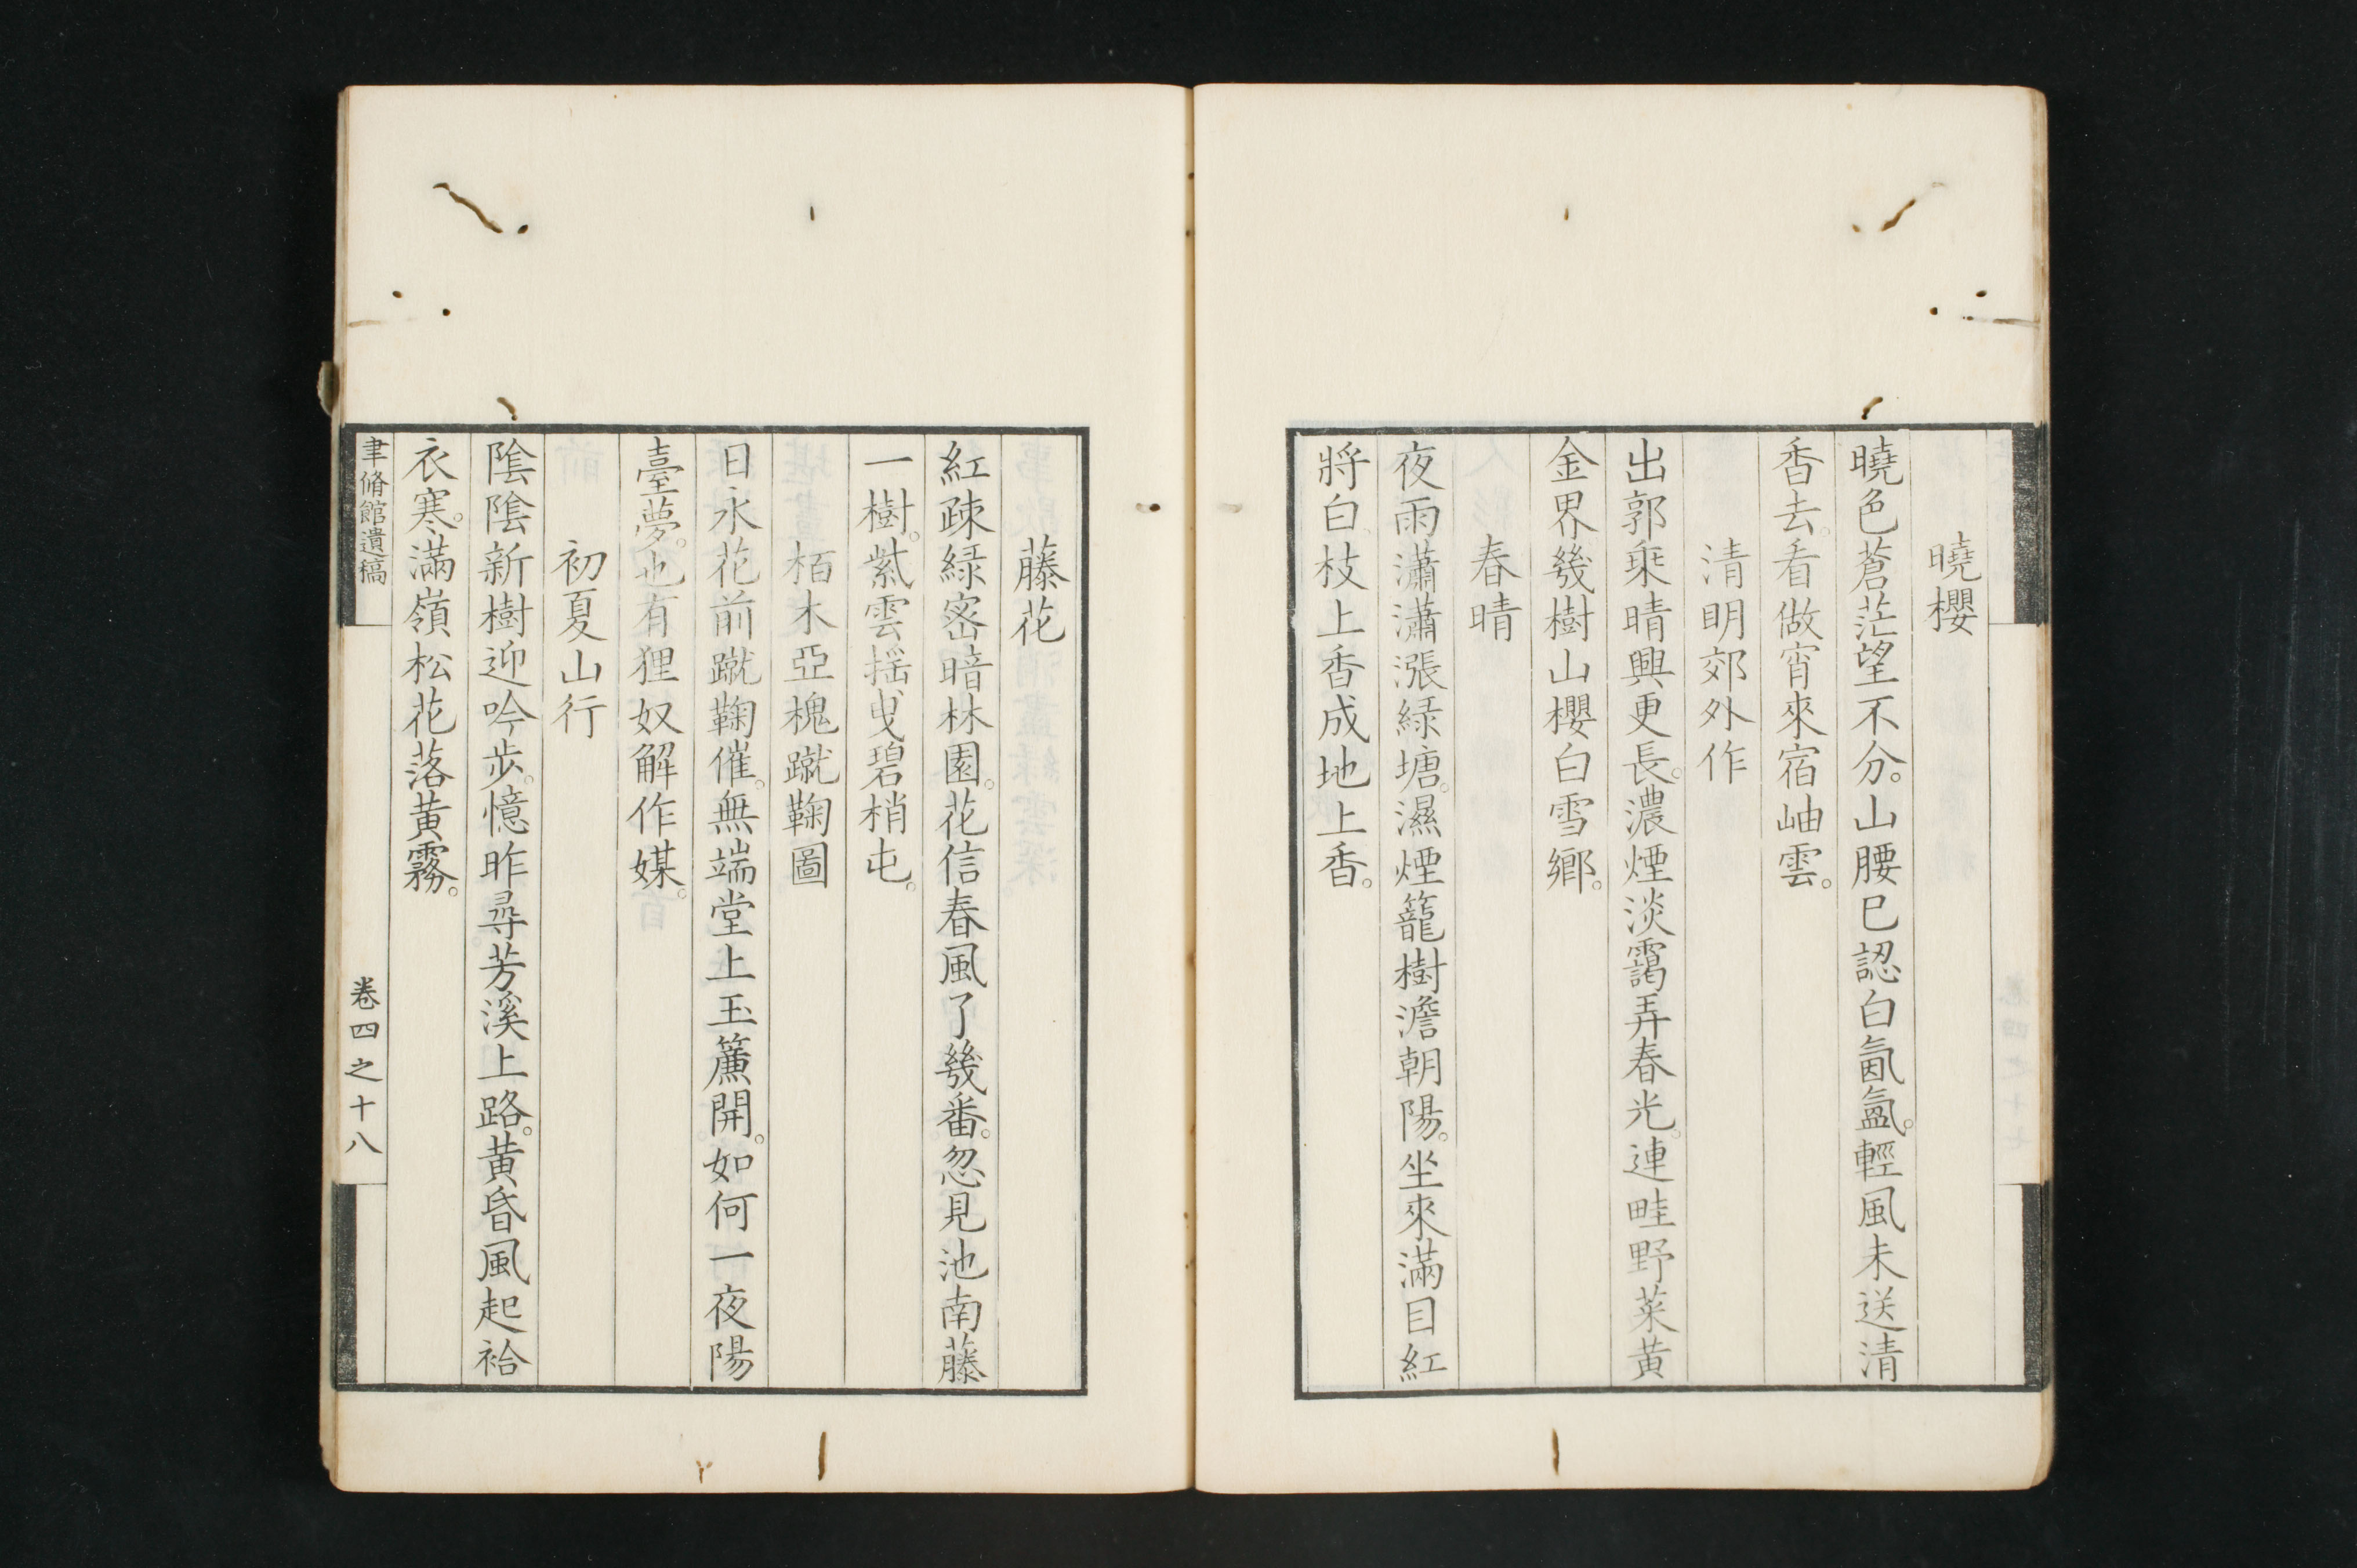 曉櫻
曉色蒼茫望不分。山腰已認白氤氳。輕風未送清
香去。看做宵來宿岫雲。
清明郊外作
出郭乘晴興更長。濃煙淡靄弄春光。連畦野菜黃
金界。幾樹山櫻白雪鄉。
春晴
夜雨瀟瀟漲綠塘。濕煙籠樹澹朝陽。坐來滿目紅
將白。枝上香成地上香。
藤花
紅疎綠密暗林園。花信春風了幾番。忽見池南藤
一樹。紫雲搖曳碧梢屯。
栢木亞槐蹴鞠圖
日永花前蹴鞠催。無端堂上玉簾開。如何一夜陽
臺夢。也有狸奴解作媒。
初夏山行
陰陰新樹迎吟步。憶昨尋芳溪上路。黃昏風起袷
衣寒。滿嶺松花落黃霧。
聿脩館遺稿
卷四之十八